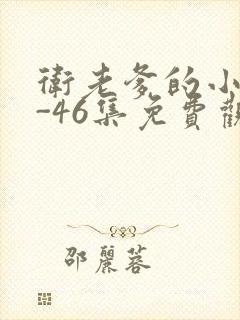 衛老爹的小
-46集免費觀
邵麗蓉